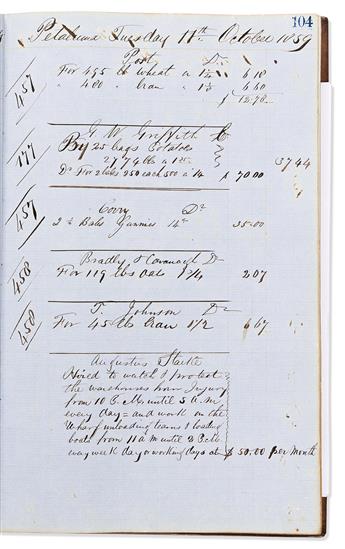 104
Petaluma Tuesday 11th October 1859
Post Dr
457 For 495 lb Wheat a 1¼ 6.18
" 480 " Bran a 6.60
$ 12.78
G. W. Griffith Cr
177 By 25 bags Potatoes
2774 lb a 37 44
Do For 2 bales 250 each 500 a 14 $ 70.00
457 Dr
2 ½ Bale Gunnies 14c 35.00
Bradley & Cavanagh Dr
458 For 119 lbs Oats 1 3/4 2 07
T. Johnson Dr
458 For 45 lb Bran 1 1/2 6 67
Augustus Starke
Hired to watch & protect
the warehouses from Injury
from 10 P.M. until 5 A.M.
every day = and work on the
Wharf unloading teams & loading
boats from 11 a M until 2 P.M.
every week day or working days at $ 50.00 per Month